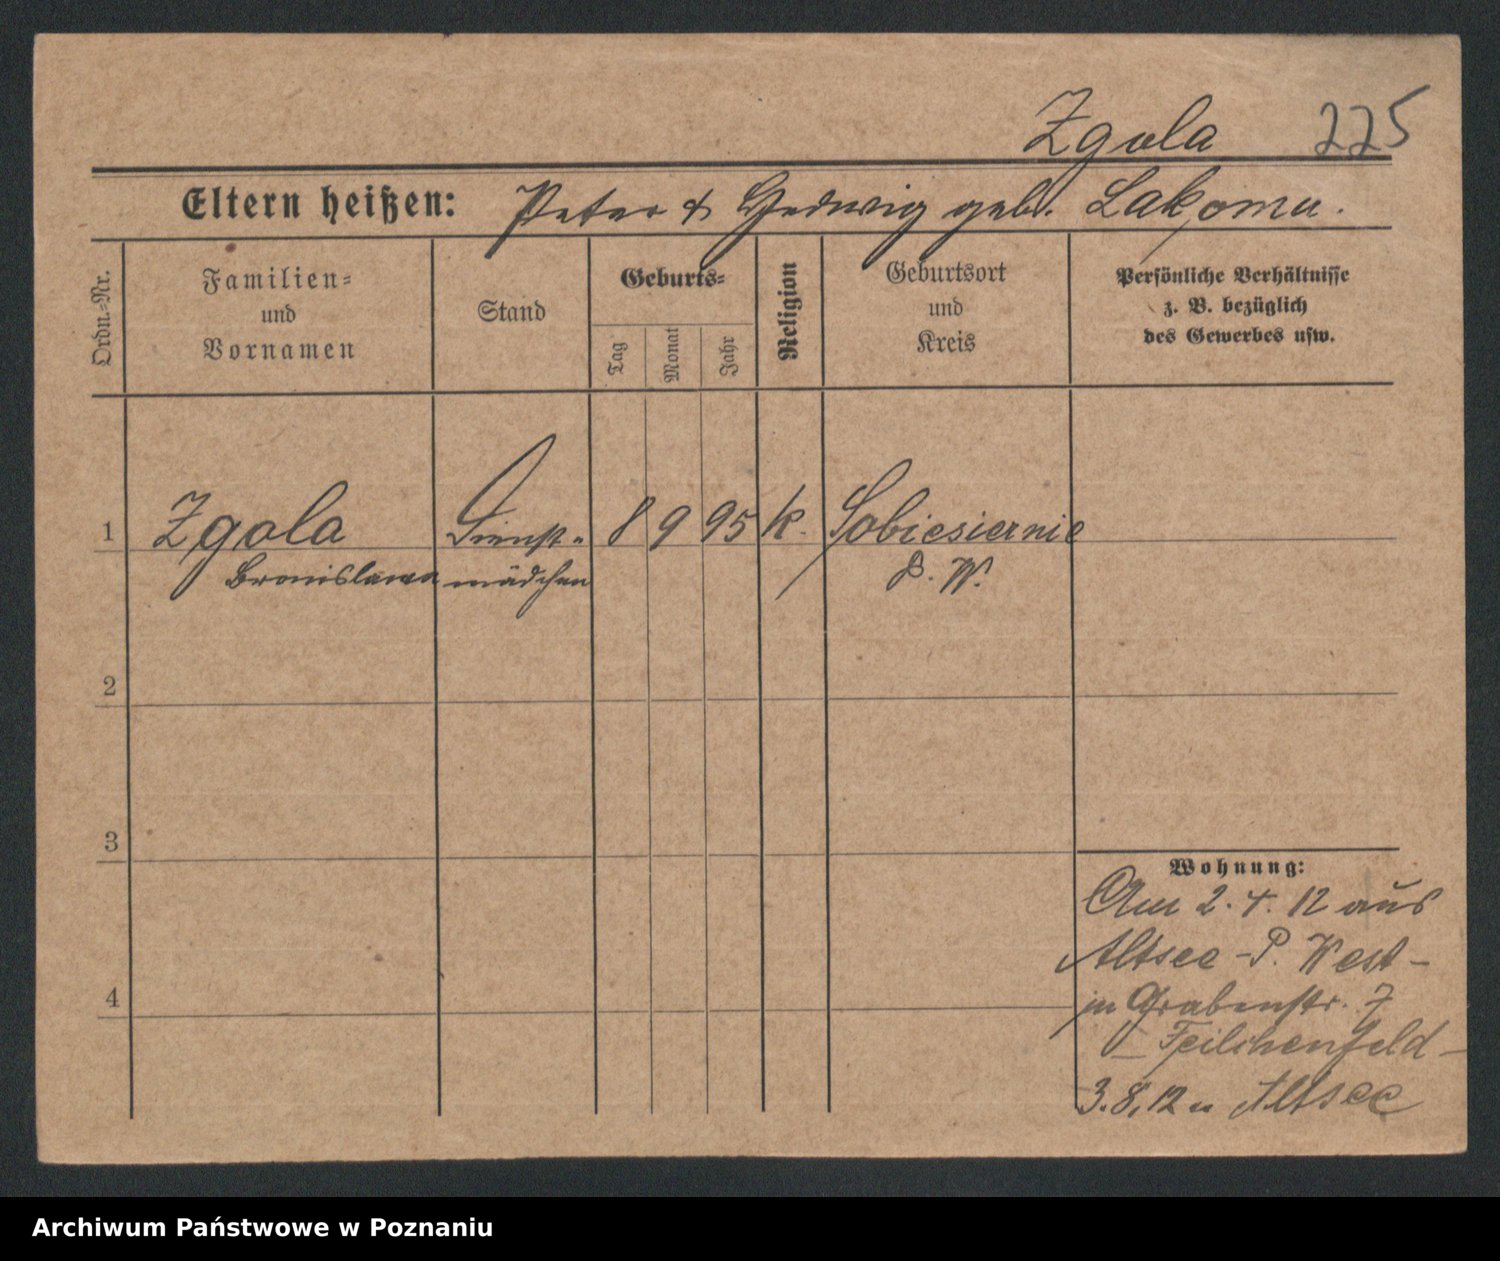 Zgola 225
Eltern heißen: Peter & Hedwig geb. Lakoma.
Ordn.-Nr.
Familien-
und
Vornamen
Stand
Geburts-
Tag
Monat
Jahr
Religion
Geburtsort
und
Kreis
Persönliche Verhältnisse
z. B. bezüglich
des Gewerbes usw.
1 Zgola Dienst- 8 9 95 k. Sobiesiernie
Bronislawa mädchen P. W.
2
3
Wohnung:
Am 2. 4. 12 aus
Altsee - P. West -
in Grabenstr. 7
4
- Feilchenfeld -
3. 8. 12 n Altsee
Archiwum Państwowe w Poznaniu